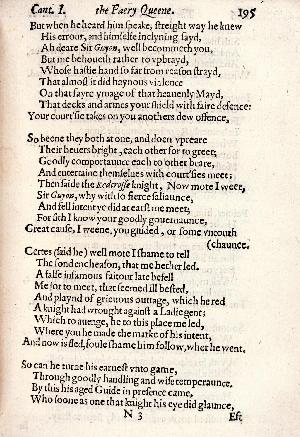 Cant. I. the Faery Queene. 195
But when he heard him speake, streight way he knew
His errour, and himselfe inclyning sayd,
Ah deare Sir Guyon, well becommeth you,
But me behoueth rather to vpbrayd,
Whose hastie hand so far from reason strayd,
That almost it did haynous violence
On that fayre ymage of that heauenly Mayd,
That decks and armes your shield with faire defence:
Your court'sie takes on you anothers dew offence.
So beene they both at one, and doen vpreare
Their beuers bright, each other for to greet;
Goodly comportaunce each to other beare,
And entertaine themselues with court'sies meet;
Then saide the Redcrosse knight, Now mote I weet,
Sir Guyon, why with so fierce saliaunce,
And fell intent ye did at earst me meet;
For sith I know your goodly gouernaunce,
Great cause, I weene, you guided, or some vncouth
(chaunce.
Certes (said he) well mote I shame to tell
The fond encheason, that me hether led.
A false infamous faitour late befell
Me for to meet, that seemed ill bested,
And playnd of grieuous outrage, which he red
A knight had wrought against a Ladie gent;
Which to auenge, he to this place me led,
Where you he made the marke of his intent,
And now is fled, foule shame him follow, wher he went.
So can he turne his earnest vnto game,
Through goodly handling and wise temperaunce.
By this his aged Guide in presence came,
Who soone as one that knight his eye did glaunce,
N 3 Eft